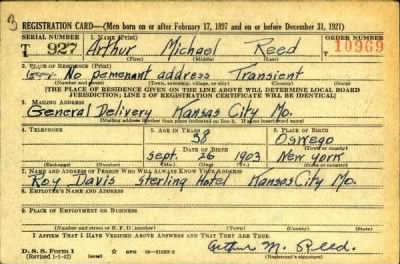 3
REGISTRATION CARD—(Men born on or after February 17, 1897 and on or before December 31, 1921)
SERIAL NUMBER 1. NAME (Print) ORDER NUMBER
T 927 Arthur Michael Reed T 10969
(First) (Middle) (Last)
2. PLACE OF RESIDENCE (Print)
No pemenant address Transient
(Number and street) (Town, township, village, or city) (County) (State)
[THE PLACE OF RESIDENCE GIVEN ON THE LINE ABOVE WILL DETERMINE LOCAL BOARD
JURISDICTION; LINE 2 OF REGISTRATION CERTIFICATE WILL BE IDENTICAL]
3. MAILING ADDRESS
General Delivery Kansas City Mo.
[Mailing address if other than place indicated on line 2.
4. TELEPHONE 5. AGE IN YEARS 6. PLACE OF BIRTH
38 Oswego
DATE OF BIRTH (Town or county)
Sept. 26 1903 New York
(Exchange) (Number) (Mo.) (Day) (Yr.) (State or country)
7. NAME AND ADDRESS OF PERSON WHO WILL ALWAYS KNOW YOUR ADDRESS
Roy Davis Sterling Hotel Kansas City Mo.
8. EMPLOYER'S NAME AND ADDRESS
9. PLACE OF EMPLOYMENT OR BUSINESS
(Number and street or R. F. D. number) (Town) (County) (State)
I AFFIRM THAT I HAVE VERIFIED ABOVE ANSWERS AND THAT THEY ARE TRUE.
D. S. S. Form 1 Arthur M. Reed.
(Revised 1-1-42) (over) (Registrant's signature)